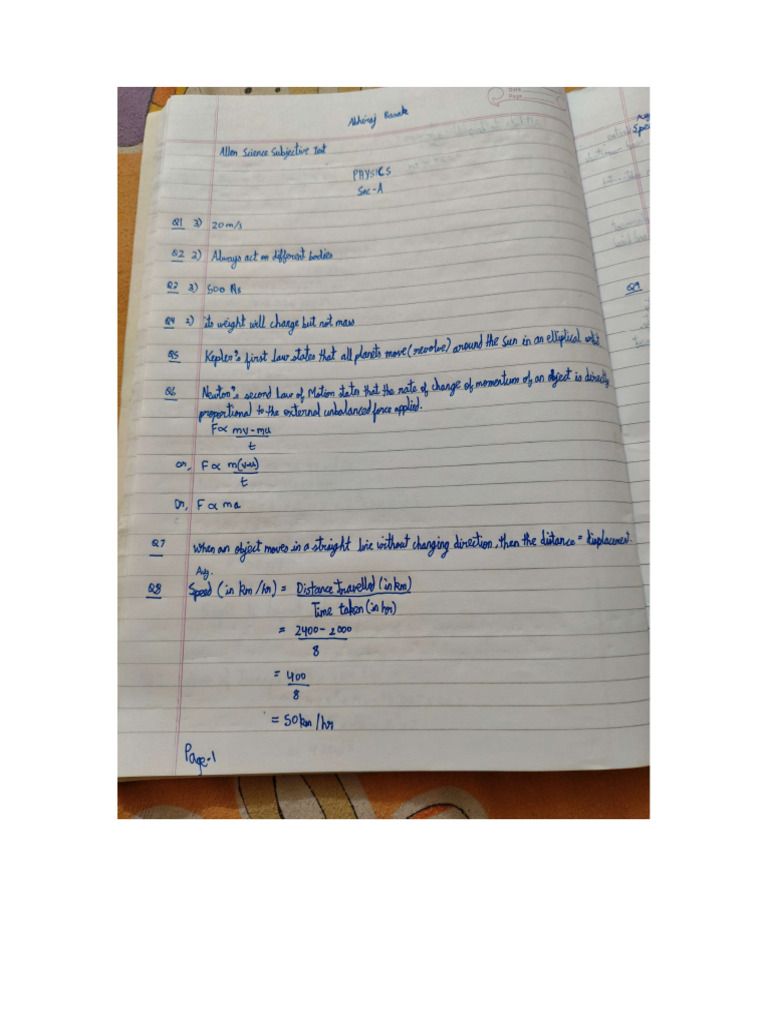 Date
Page
Abhiraj Basak
Allen Science Subjective Test
PHYSICS
Sec-A
Q1 3) 20m/s
Q2 2) Always act on different bodies
Q3 3) 500 Ns
Q4 2) its weight will change but not mass
Q5 Kepler's first Law states that all planets move (revolve) around the sun in an elliptical orbit
Q6 Newton's second Law of Motion states that the rate of change of momentum of an object is directly
proportional to the external unbalanced force applied.
F ∝ mv - mu
t
or, F ∝ m(v-u)
t
Or, F ∝ ma
Q7 When an object moves in a straight line without changing direction, then the distance = displacement.
Avg.
Q8 Speed (in km/hr) = Distance travelled (in km)
Time taken (in hr)
= 2400 - 2000
8
= 400
8
= 50km/hr
Page-1
Q9